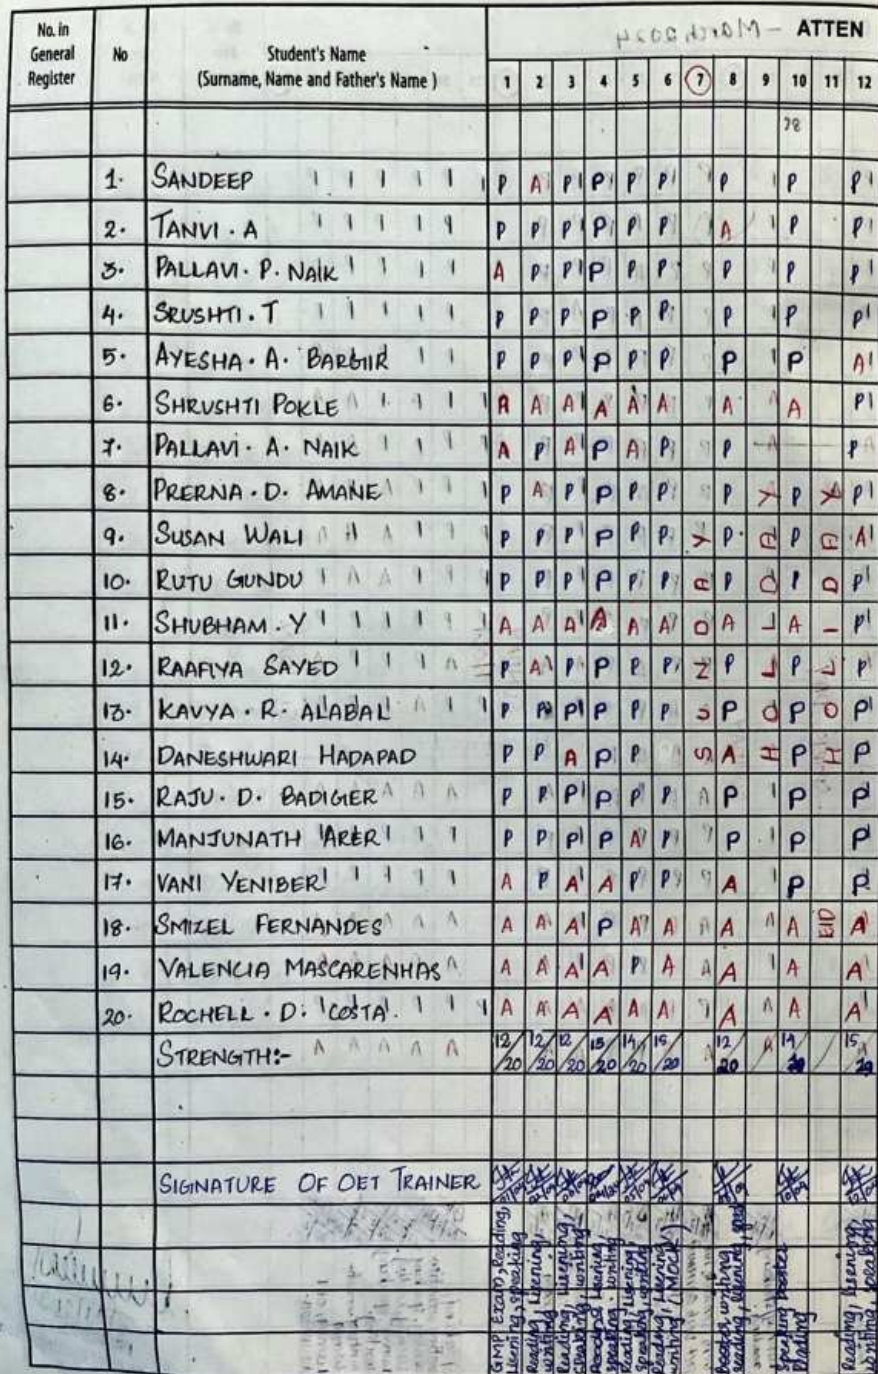 No. in General Register | No | Student's Name (Surname, Name and Father's Name) | ATTEN
1 2 3 4 5 6 7 8 9 10 11 12
1. SANDEEP P A P P P P P P P
2. TANVI. A P P P P P P A P P
3. PALLAVI. P. NAIK A P P P P P P P P
4. SRUSHTI. T P P P P P P P P P
5. AYESHA. A. BARGIR P P P P P P P P A
6. SHRUSHTI POKLE A A A A A A A A P
7. PALLAVI. A. NAIK A P A P A P P P
8. PRERNA. D. AMANE P A P P P P P Y P Y P
9. SUSAN WALI P P P P P P Y P A P A A
10. RUTU GUNDU P P P P P P A P D P D P
11. SHUBHAM. Y A A A A A A D A I A I P
12. RAAFIYA SAYED P A P P P P N P L P L P
13. KAVYA. R. ALABAL P P P P P P U P O P O P
14. DANESHWARI HADAPAD P P A P P S A H P H P
15. RAJU. D. BADIGER P P P P P P P P P
16. MANJUNATH ARER P P P P A P P P P
17. VANI YENIBER A P A A P P A P P
18. SMIZEL FERNANDES A A A P A A A A EID A
19. VALENCIA MASCARENHAS A A A A P A A A A
20. ROCHELL. D. COSTA. A A A A A A A A A
STRENGTH:- 12/20 12/20 12/20 15/20 14/20 15/20 12/20 14/20 15/20
SIGNATURE OF OET TRAINER
GMP Exam, Reading, Listening, speaking
Reading, Listening, writing
Reading, Listening, speaking, writing
Reading, Listening, speaking, writing
Reading, Listening, speaking, writing
Reading, Listening, writing (MOCK)
Reading, Listening, writing, speaking